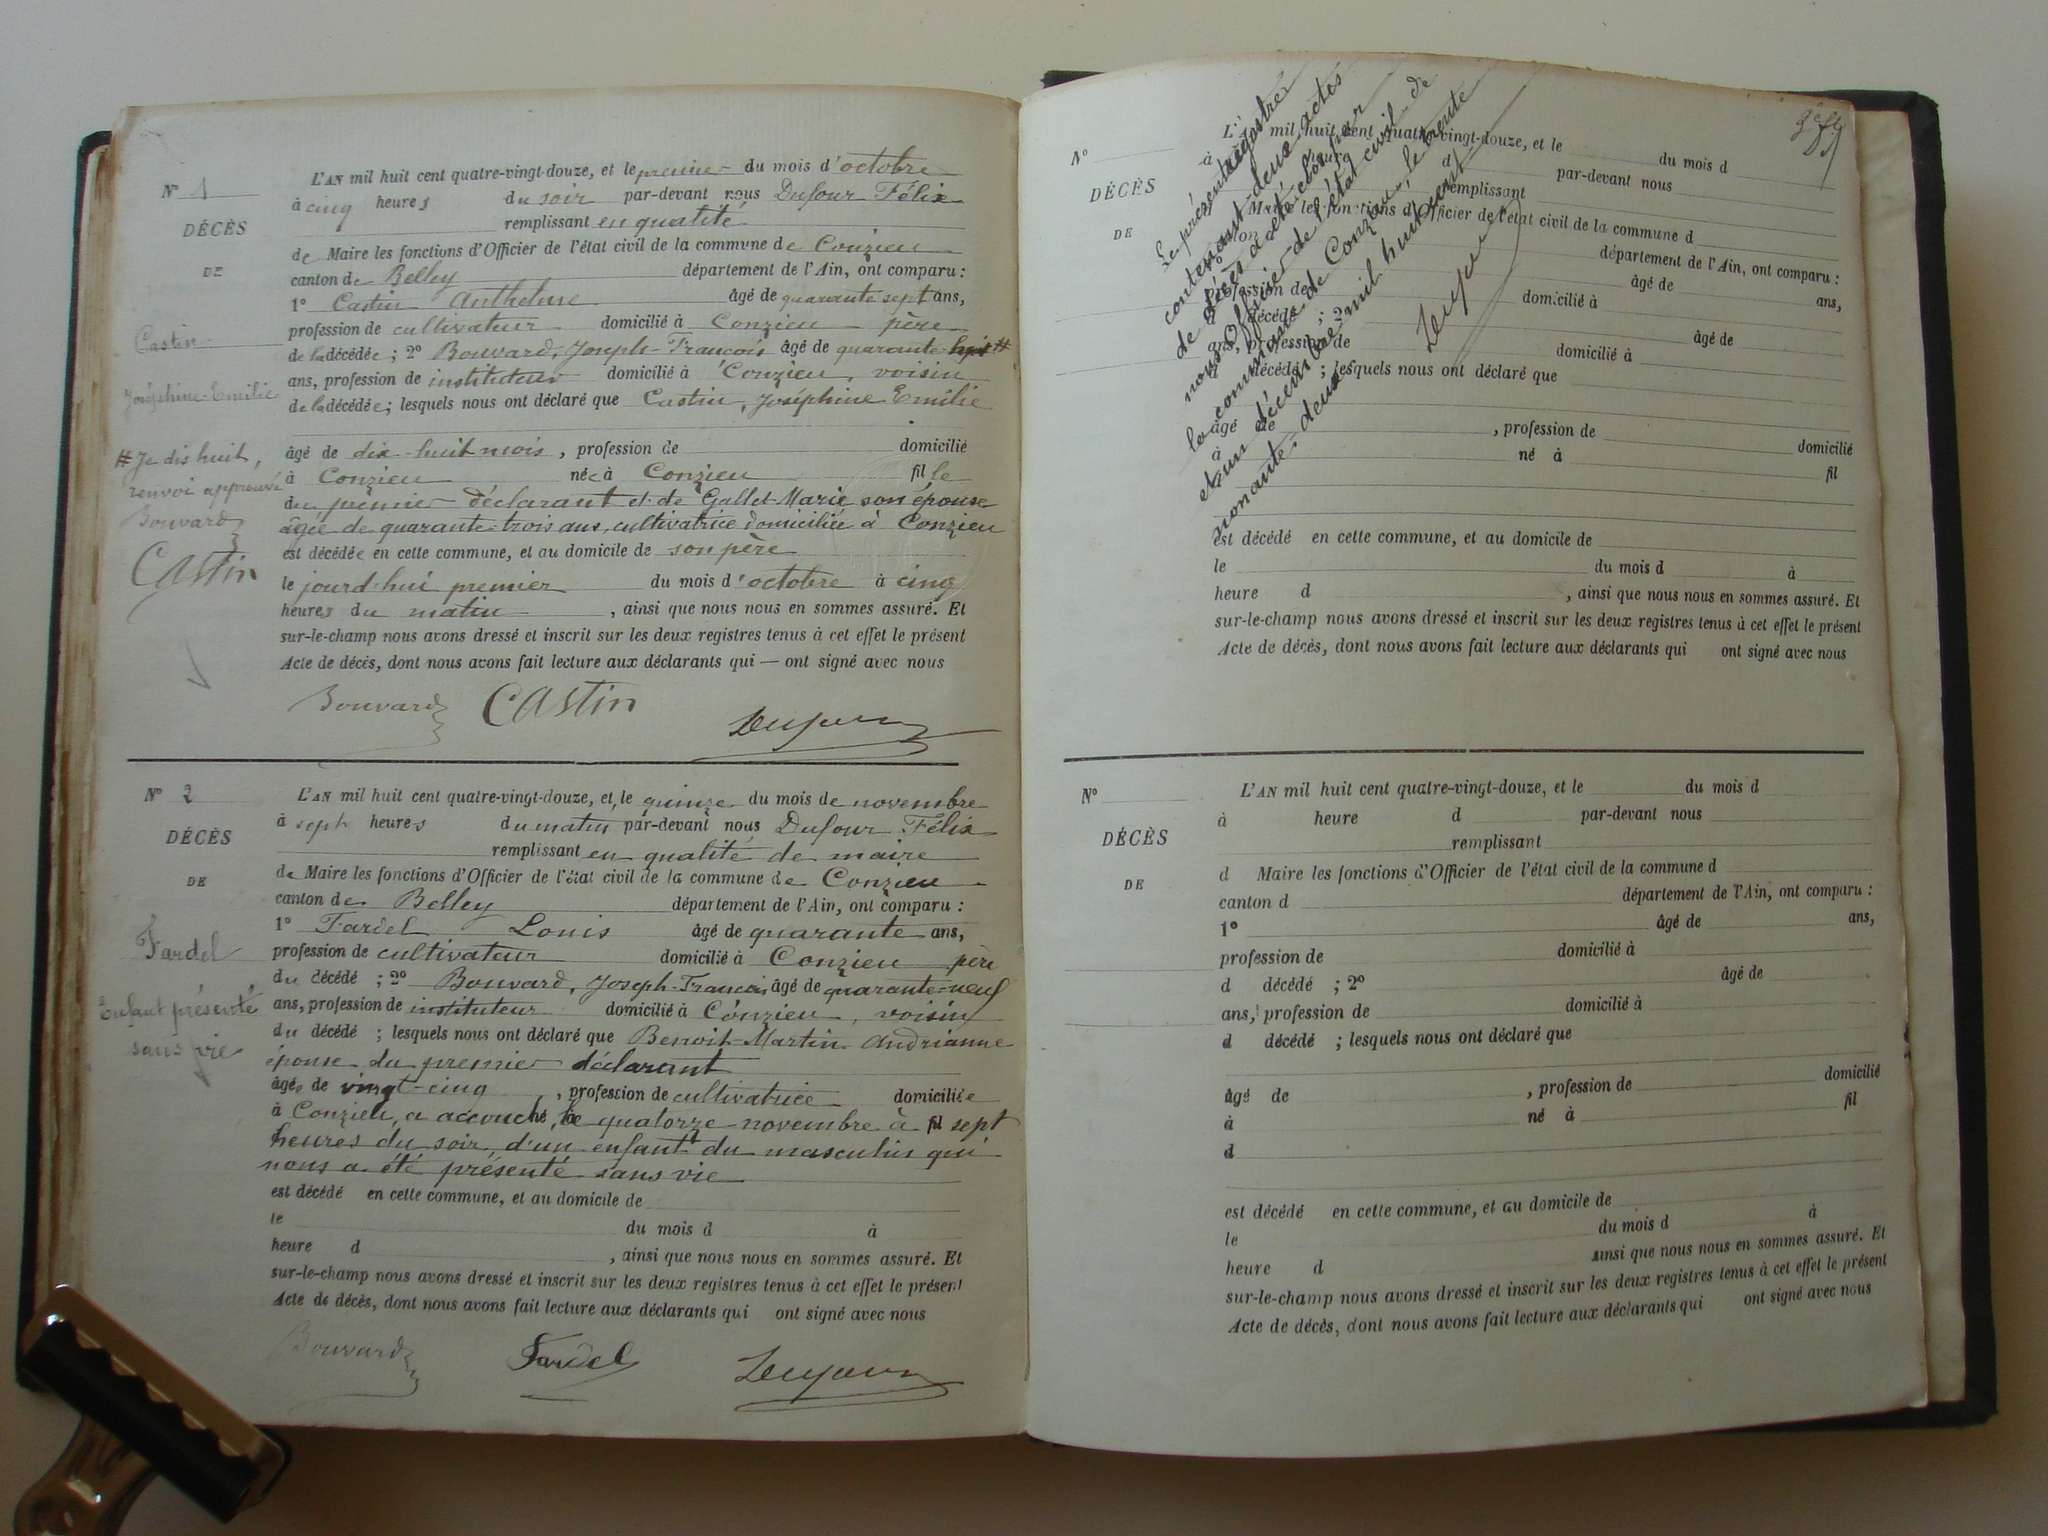 N° 1
DÉCÈS
DE
Castin
Joséphine-Emilie
# Je dis huit,
renvoi approuvé
Bouvard
Castin
L'AN mil huit cent quatre-vingt-douze, et le premier du mois d'octobre
à cinq heures du soir par-devant nous Dufour Félix
remplissant en qualité
de Maire les fonctions d'Officier de l'état civil de la commune de Conzieu
canton de Belley département de l'Ain, ont comparu :
1° Castin Anthelme âgé de quarante sept ans,
profession de cultivateur domicilié à Conzieu père
de la décédée ; 2° Bouvard, Joseph-François âgé de quarante #
ans, profession de instituteur domicilié à Conzieu, voisin
de la décédée ; lesquels nous ont déclaré que Castin, Joséphine Emilie
âgé de dix-huit mois, profession de domicilié
à Conzieu née à Conzieu fille
du premier déclarant et de Gallet Marie son épouse
âgée de quarante-trois ans, cultivatrice domiciliée à Conzieu
est décédée en cette commune, et au domicile de son père
le jourd'hui premier du mois d'octobre à cinq
heures du matin, ainsi que nous nous en sommes assuré. Et
sur-le-champ nous avons dressé et inscrit sur les deux registres tenus à cet effet le présent
Acte de décès, dont nous avons fait lecture aux déclarants qui — ont signé avec nous
Bouvard Castin Dufour
N° 2
DÉCÈS
DE
Fardel
Enfant présenté
sans vie
L'AN mil huit cent quatre-vingt-douze, et le quinze du mois de novembre
à sept heures du matin par-devant nous Dufour Félix
remplissant en qualité de maire
de Maire les fonctions d'Officier de l'état civil de la commune de Conzieu
canton de Belley département de l'Ain, ont comparu :
1° Fardel Louis âgé de quarante ans,
profession de cultivateur domicilié à Conzieu père
du décédé ; 2° Bouvard, Joseph-François âgé de quarante-neuf
ans, profession de instituteur domicilié à Conzieu, voisin
du décédé ; lesquels nous ont déclaré que Benoit-Martin Andrianne
épouse du premier déclarant
âgée de vingt-cinq, profession de cultivatrice domiciliée
à Conzieu, a accouché, le quatorze novembre à fil sept
heures du soir, d'un enfant du masculin qui
nous a été présenté sans vie
est décédé en cette commune, et au domicile de
le du mois d à
heure d , ainsi que nous nous en sommes assuré. Et
sur-le-champ nous avons dressé et inscrit sur les deux registres tenus à cet effet le présent
Acte de décès, dont nous avons fait lecture aux déclarants qui ont signé avec nous
Bouvard Fardel Dufour
N°
DÉCÈS
DE
L'AN mil huit cent quatre-vingt-douze, et le du mois d
à heure d par-devant nous
remplissant
d Maire les fonctions d'Officier de l'état civil de la commune d
canton département de l'Ain, ont comparu :
âgé de ans,
profession de domicilié à
d décédé ; 2° âgé de
ans, profession de domicilié à
d décédé ; lesquels nous ont déclaré que
âgé de , profession de domicilié
à né à fil
est décédé en cette commune, et au domicile de
le du mois d à
heure d , ainsi que nous nous en sommes assuré. Et
sur-le-champ nous avons dressé et inscrit sur les deux registres tenus à cet effet le présent
Acte de décès, dont nous avons fait lecture aux déclarants qui ont signé avec nous
Le présent registre
contenant deux actes
de décès a été clos par
nous Officier de l'état civil de
la commune de Conzieu, le trente
et un décembre mil huit cent
nonante-deux
Dufour
N°
DÉCÈS
DE
L'AN mil huit cent quatre-vingt-douze, et le du mois d
à heure d par-devant nous
remplissant
d Maire les fonctions d'Officier de l'état civil de la commune d
canton d département de l'Ain, ont comparu :
1° âgé de ans,
profession de domicilié à
d décédé ; 2° âgé de
ans, profession de domicilié à
d décédé ; lesquels nous ont déclaré que
âgé de , profession de domicilié
à né à fil
d
est décédé en cette commune, et au domicile de
le du mois d à
heure d ainsi que nous nous en sommes assuré. Et
sur-le-champ nous avons dressé et inscrit sur les deux registres tenus à cet effet le présent
Acte de décès, dont nous avons fait lecture aux déclarants qui ont signé avec nous